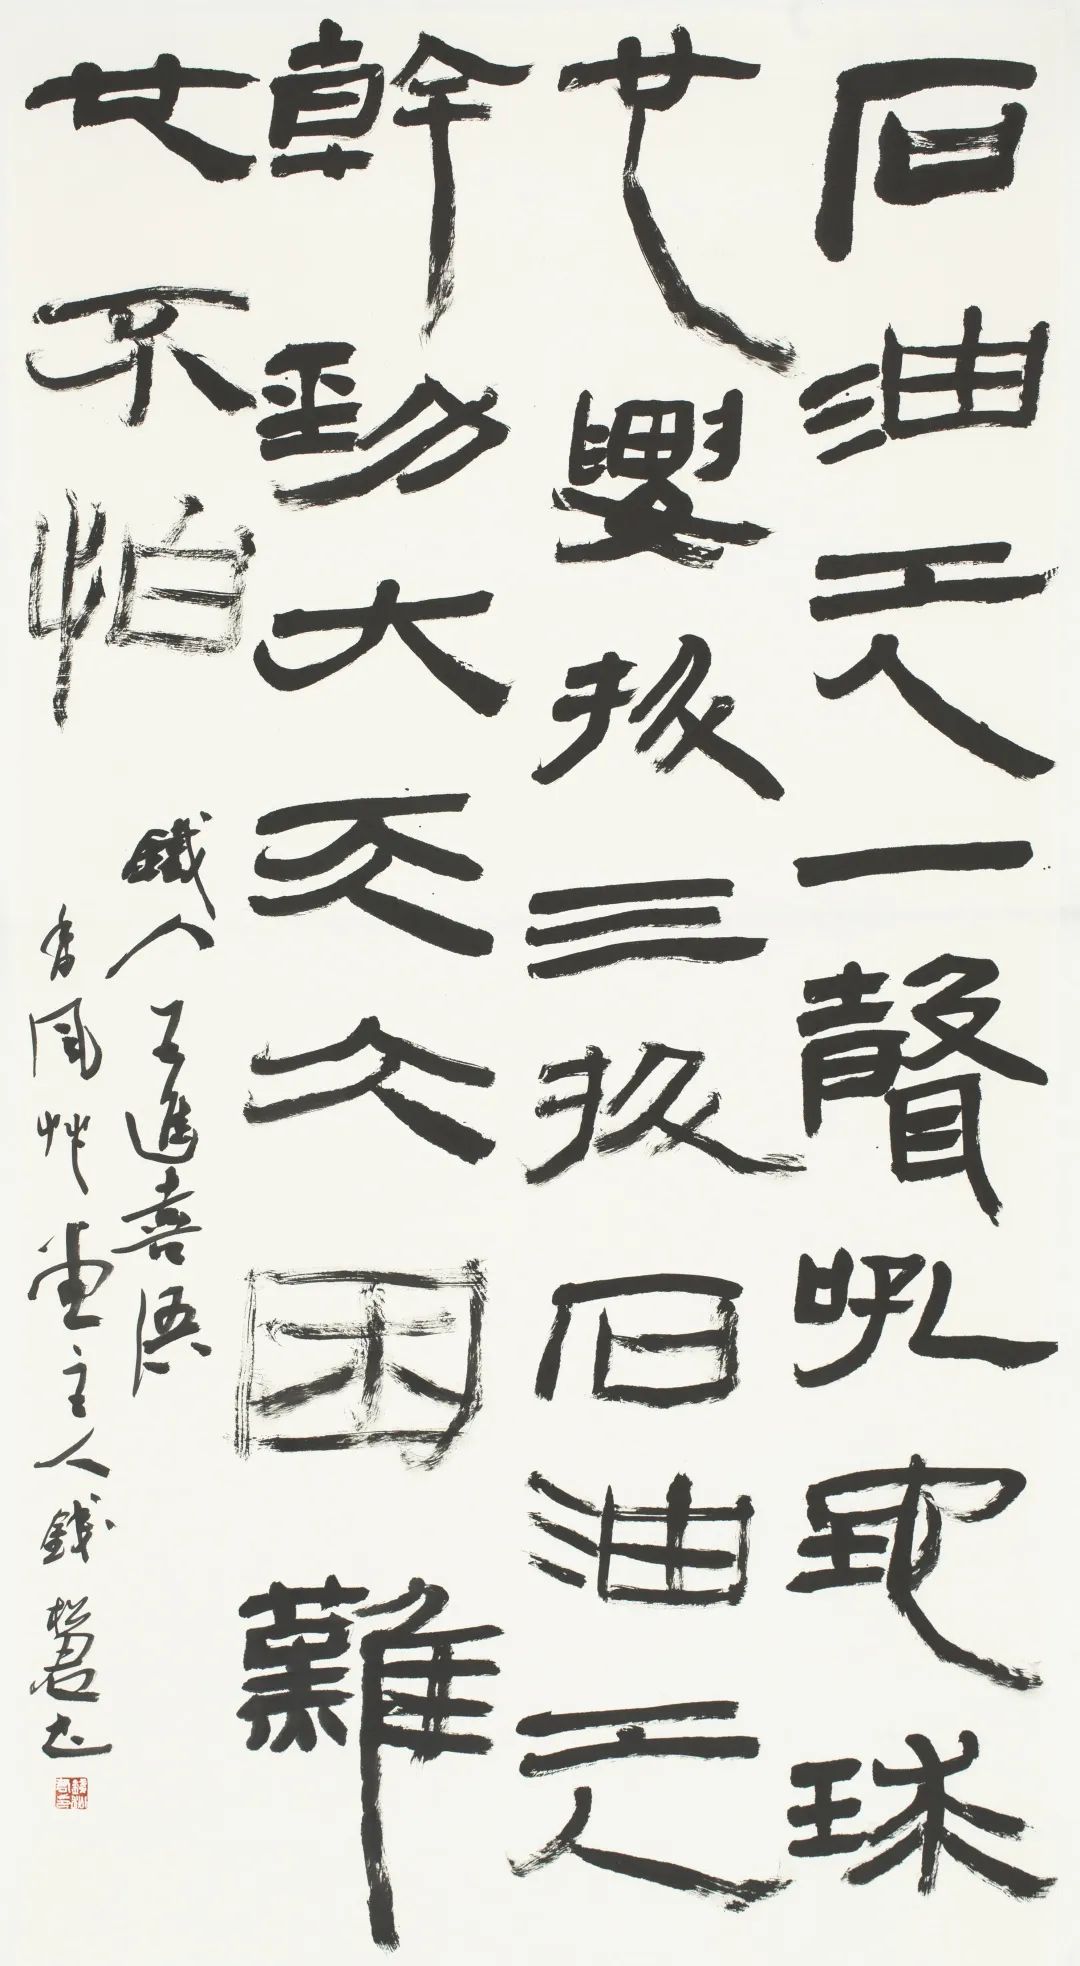 石油工人一聲吼地球
也要抖三抖石油工人
幹勁大天大困難
也不怕
鐵人王進喜語
香風艸堂主人錢松君书